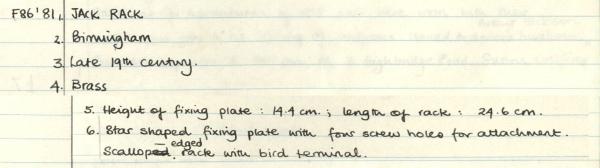 F86'81. JACK RACK
2. Birmingham
3. Late 19th century.
4. Brass
5. Height of fixing plate : 14.4 cm. ; length of rack : 24.6 cm.
6. Star shaped fixing plate with four screw holes for attachment.
Scalloped edged rack with bird terminal.